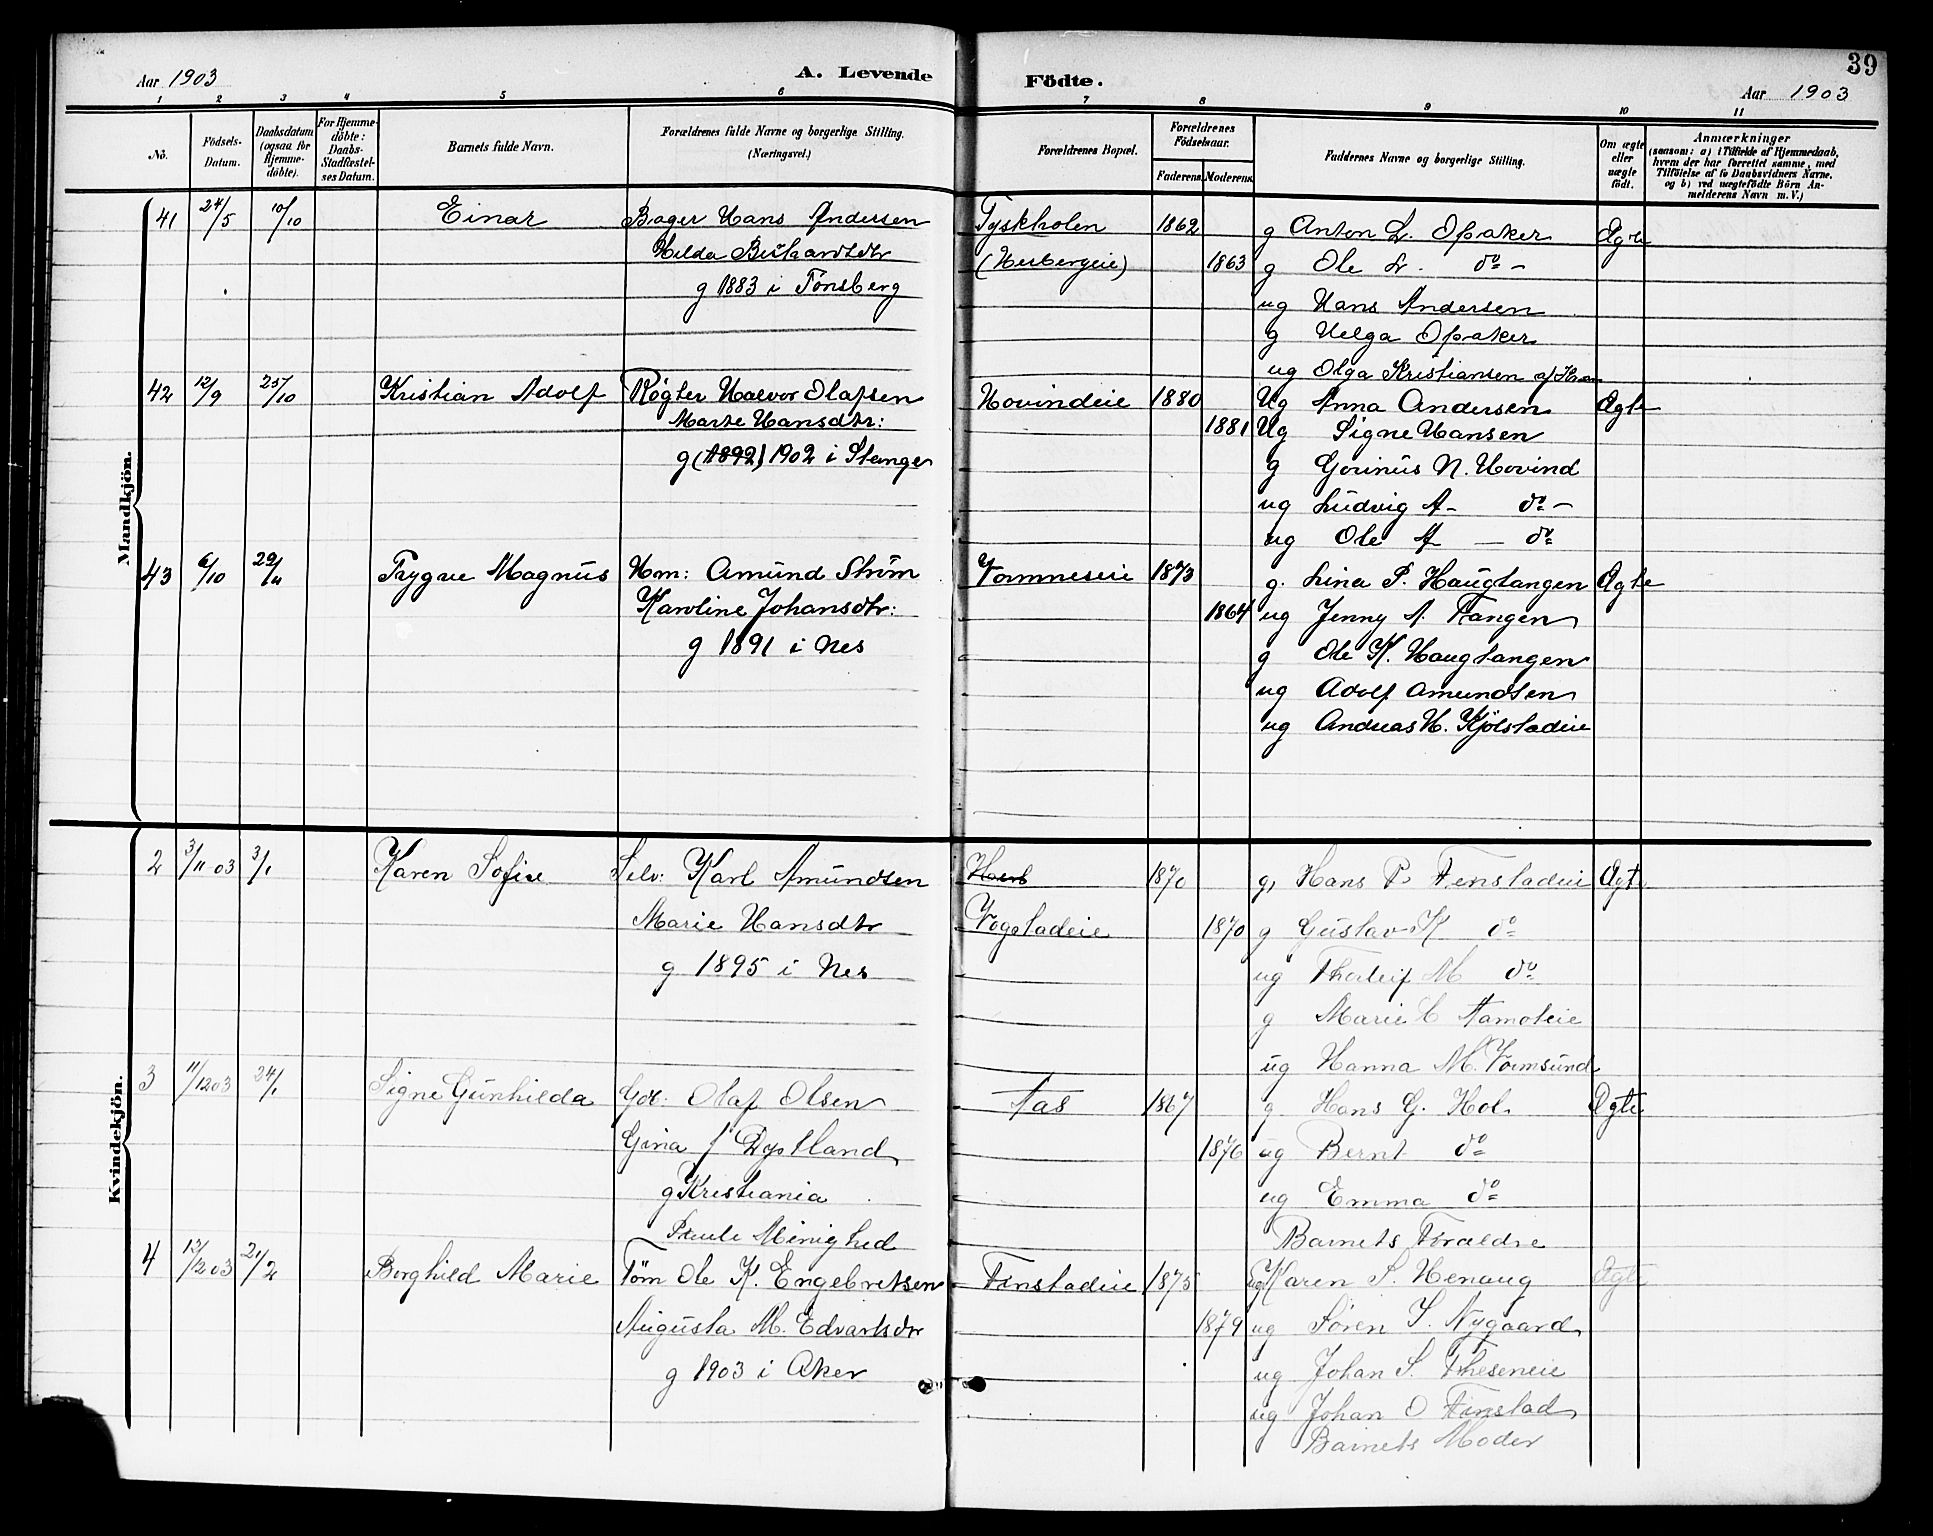 39
Aar 1903
A. Levende Födte.
Aar 1903
1 2 3 4 5 6 7 8 9 10 11
No.
Födsels-
Datum.
Daabsdatum
(ogsaa for
Hjemme-
döbte).
For Hjemme-
döbte:
Daabs-
Stadfæstel-
ses Datum.
Barnets fulde Navn.
Forældrenes fulde Navne og borgerlige Stilling.
(Næringsvei.)
Forældrenes Bopæl.
Forældrenes
Födselsaar.
Faderens. Moderens.
Faddernes Navne og borgerlige Stilling.
Om ægte
eller
uægte
födt.
Anmærkninger
(saasom: a) i Tilfælde af Hjemmedaab,
hvem der har forrettet samme, med
Tilföielse af to Daabsvidners Navne.
og b) ved uægtefödte Börn An-
melderens Navn m. V.)
Mandkjön.
41 24/5 10/10 Einar Bager Hans Andersen Tyskholen 1862 g Anton L. Opaker Ægte
Hilda (Herbergeie) 1863 g Ole L. do -
g 1883 i Tønsberg ug Hans Andersen
g Helga Opaker
ug Olga Kristiansen af
42 12/9 25/10 Kristian Adolf Røgter Halvor Olafsen Hovindeie 1880 Ug Anna Andersen Ægte
Marte Hansdtr: 1881 Ug Signe Hansen
g (1892) 1902 i Stange g Gorinus N. Hovind
ug Ludvig A- do -
ug Ole A - do
43 6/10 29/11 Trygve Magnus Hm: Amund Strøm Vormneseie 1873 g. Lina P. Haugtangen Ægte
Karoline Johansdtr: 1864 ug Jenny A. Tangen
g 1891 i Nes g Ole K. Haugtangen
ug Adolf Amundsen
ug Andreas H. Kjølstadeie
Kvindekjön.
2 3/11 03 3/1 Karen Sofie Selv: Karl Amundsen 1870 g, Hans P. Fenstadeie Ægte
Marie Hansdtr Vogstadeie 1870 g Gustav K do
g 1895 i Nes ug Thorleif M do
g Marie C
ug Hanna M. Vormsund
3 11/12 03 24/1 Signe Gunhilda Gdr: Olaf Olsen Aas 1867 g Hans G. Hol Ægte
Gina f Dystland 1876 ug Bernt do
g Kristiania ug Emma do
Paule Menighed Barnets Forældre
4 13/12 03 21/2 Borghild Marie Tøm Ole K. Engebretsen Finstadeie 1875 ug Karen S. Henaug Ægte
Augusta M. Edvartsdtr 1879 ug Søren S. Nygaard
g 1903 i Aker ug Johan S. Theseneie
ug Johan O Finstad
Barnets Moder